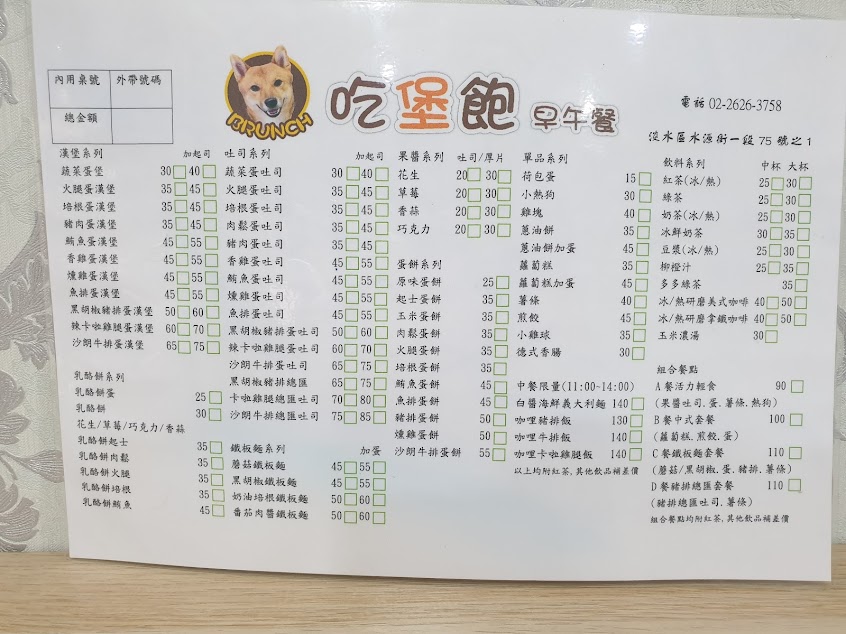 內用桌號 外帶號碼
總金額
BRUNCH
吃堡飽 早午餐
電話 02-2626-3758
淡水區水源街一段 75 號之1
漢堡系列 加起司
蔬菜蛋堡 30 40
火腿蛋漢堡 35 45
培根蛋漢堡 35 45
豬肉蛋漢堡 35 45
鮪魚蛋漢堡 45 55
香雞蛋漢堡 45 55
燻雞蛋漢堡 45 55
魚排蛋漢堡 45 55
黑胡椒豬排蛋漢堡 50 60
辣卡啦雞腿蛋漢堡 60 70
沙朗牛排蛋漢堡 65 75
乳酪餅系列
乳酪餅蛋 25
乳酪餅 30
花生/草莓/巧克力/香蒜
乳酪餅起士 35
乳酪餅肉鬆 35
乳酪餅火腿 35
乳酪餅培根 35
乳酪餅鮪魚 45
吐司系列 加起司
蔬菜蛋吐司 30 40
火腿蛋吐司 35 45
培根蛋吐司 35 45
肉鬆蛋吐司 35 45
豬肉蛋吐司 35 45
香雞蛋吐司 45 55
鮪魚蛋吐司 45 55
燻雞蛋吐司 45 55
魚排蛋吐司 45 55
黑胡椒豬排蛋吐司 50 60
辣卡啦雞腿蛋吐司 60 70
沙朗牛排蛋吐司 65 75
黑胡椒豬排總匯 65 75
卡啦雞腿總匯吐司 70 80
沙朗牛排總匯吐司 75 85
鐵板麵系列 加蛋
蘑菇鐵板麵 45 55
黑胡椒鐵板麵 45 55
奶油培根鐵板麵 50 60
番茄肉醬鐵板麵 50 60
果醬系列 吐司/厚片
花生 20 30
草莓 20 30
香蒜 20 30
巧克力 20 30
蛋餅系列
原味蛋餅 25
起士蛋餅 35
玉米蛋餅 35
肉鬆蛋餅 35
火腿蛋餅 35
培根蛋餅 35
鮪魚蛋餅 45
魚排蛋餅 45
豬排蛋餅 50
燻雞蛋餅 50
沙朗牛排蛋餅 55
單品系列
荷包蛋 15
小熱狗 30
雞塊 40
蔥油餅 35
蔥油餅加蛋 45
蘿蔔糕 35
蘿蔔糕加蛋 45
薯條 40
煎餃 45
小雞球 35
德式香腸 30
中餐限量(11:00~14:00)
白醬海鮮義大利麵 140
咖哩豬排飯 130
咖哩牛排飯 140
咖哩卡啦雞腿飯 140
以上均附紅茶,其他飲品補差價
飲料系列 中杯 大杯
紅茶(冰/熱) 25 30
綠茶 25 30
奶茶(冰/熱) 25 30
冰鮮奶茶 30 35
豆漿(冰/熱) 25 30
柳橙汁 25 35
多多綠茶 35
冰/熱研磨美式咖啡 40 50
冰/熱研磨拿鐵咖啡 40 50
玉米濃湯 30
組合餐點
A餐活力輕食 90
(果醬吐司.蛋.薯條.熱狗)
B餐中式套餐 100
(蘿蔔糕.煎餃.蛋)
C餐鐵板麵套餐 110
(蘑菇/黑胡椒.蛋.豬排.薯條)
D餐豬排總匯套餐 110
(豬排總匯吐司.薯條)
組合餐點均附紅茶,其他飲品補差價